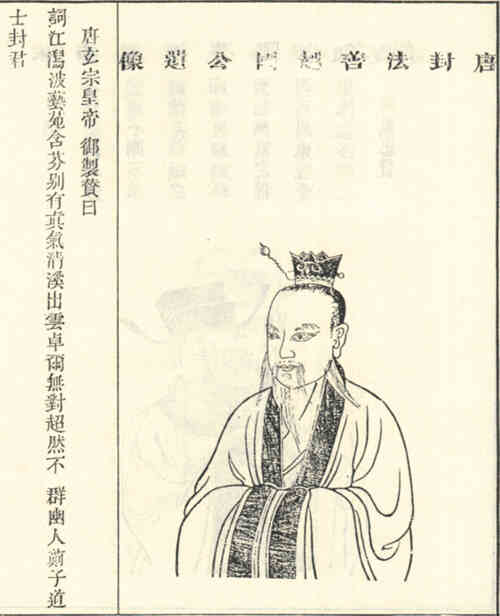 唐封法善越國公遺像
唐玄宗皇帝 御製賛曰
詞江瀉波藝苑含芬别有真氣清溪出雲卓爾無對超然不 群幽人薊子道
士封君